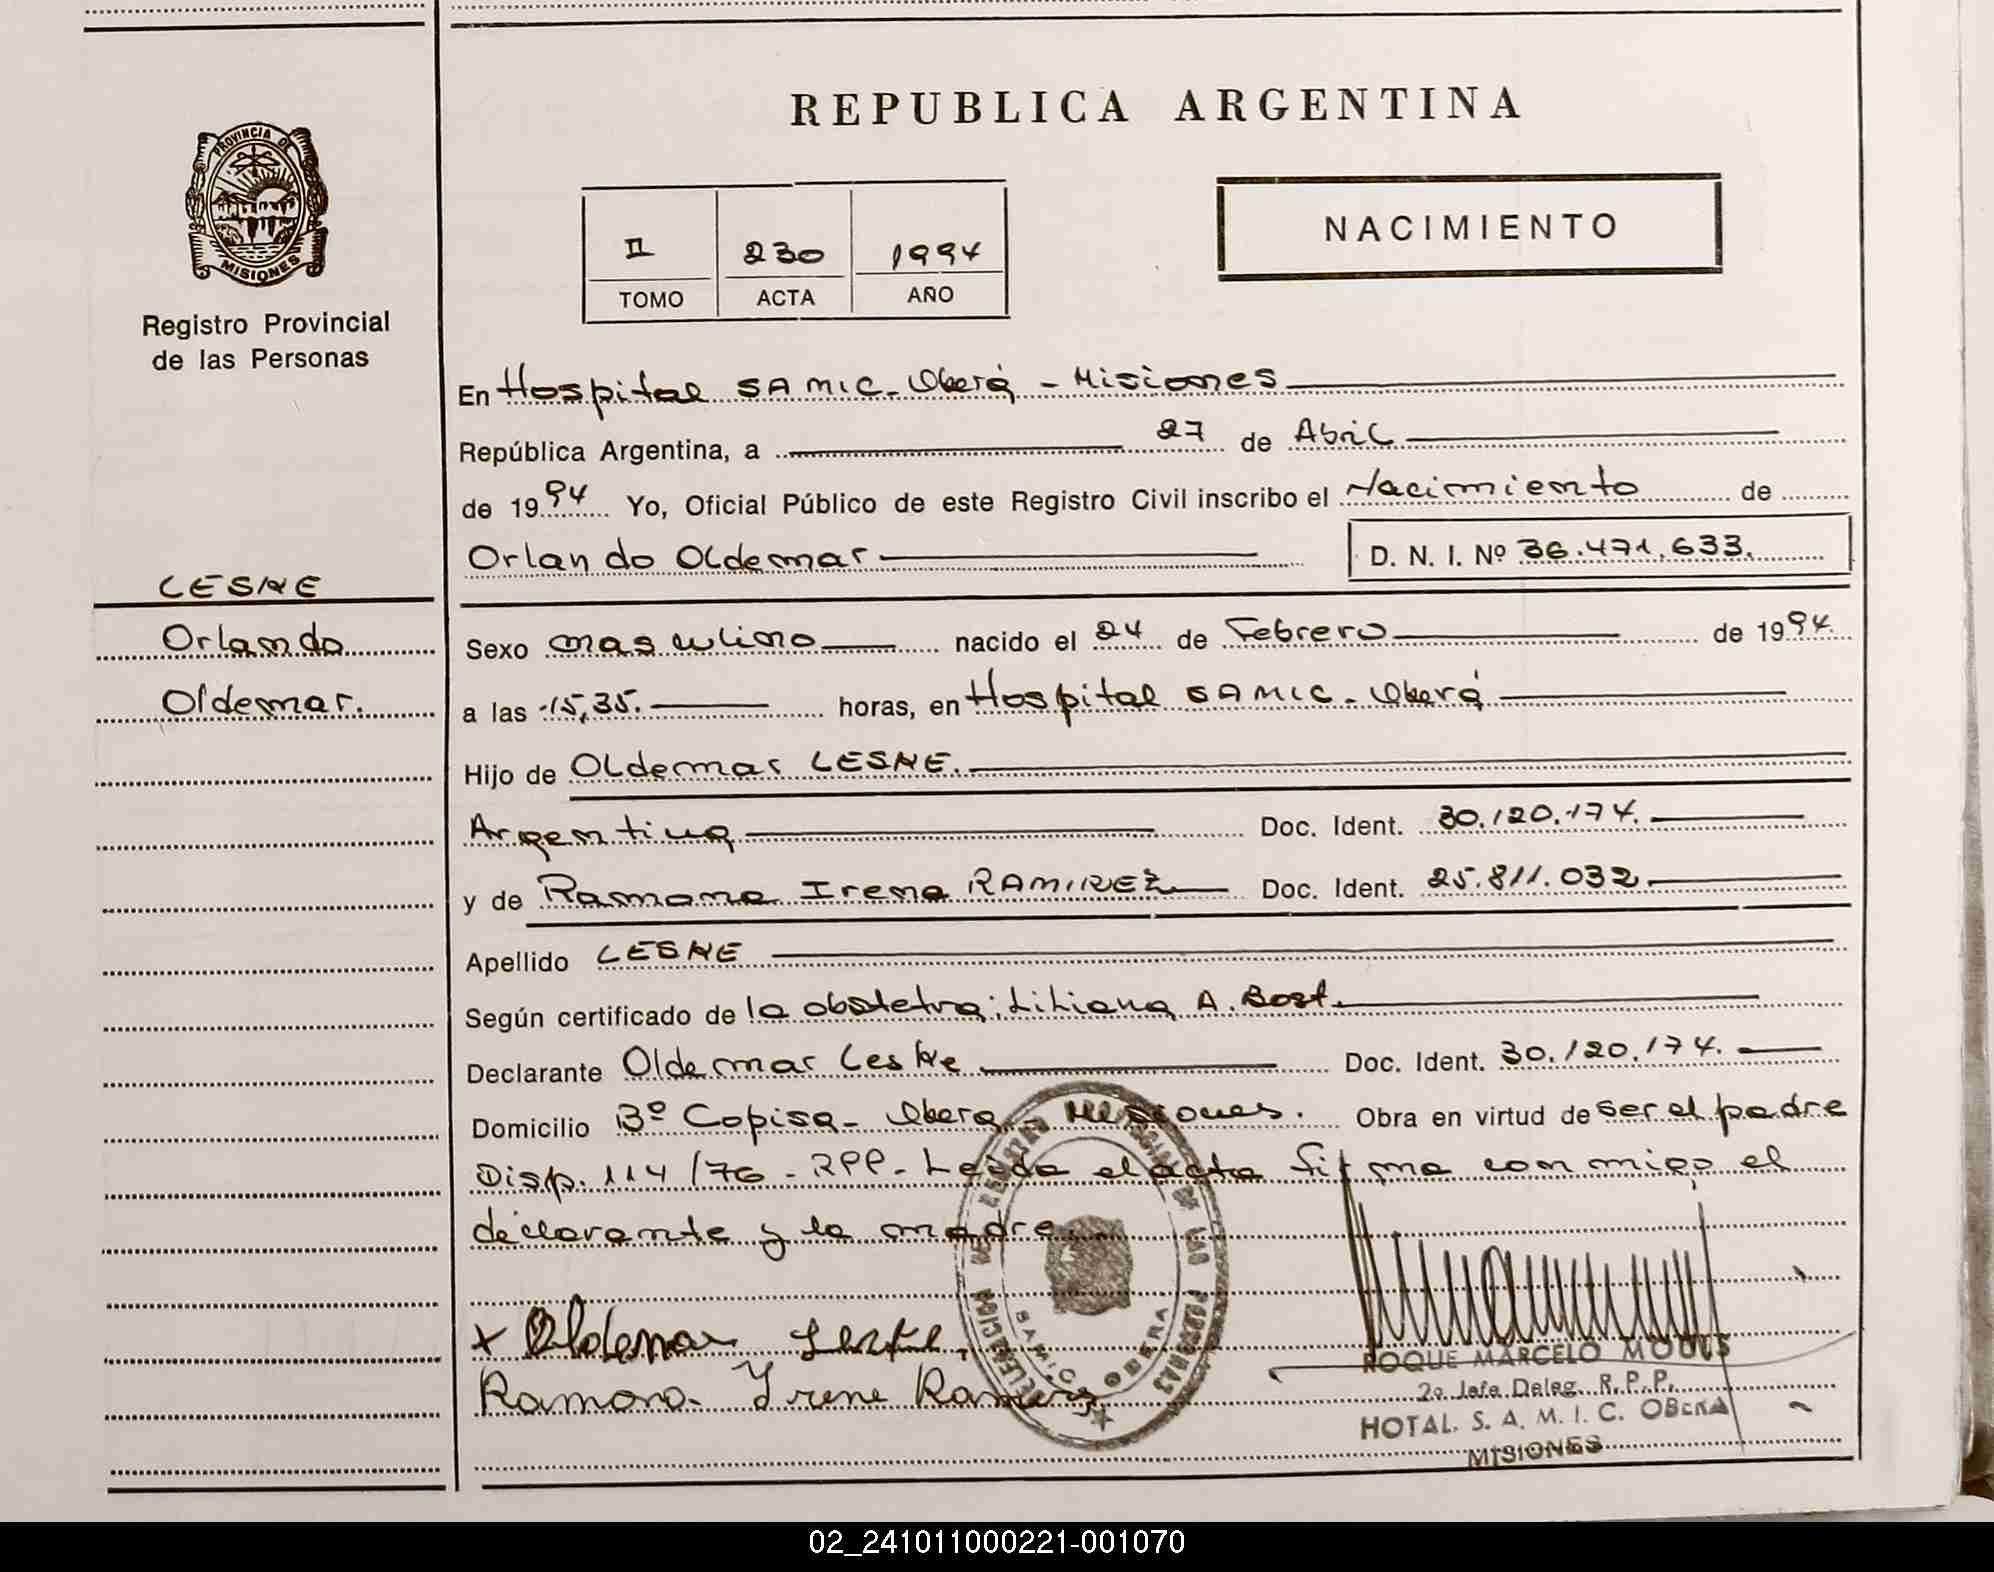 REPUBLICA ARGENTINA
PROVINCIA DE
MISIONES
Registro Provincial
de las Personas
NACIMIENTO
II 230 1994
TOMO ACTA AÑO
En Hospital SAMIC - Oberá - Misiones
República Argentina, a 27 de Abril
de 1994 Yo, Oficial Público de este Registro Civil inscribo el Nacimiento de
Orlando Oldemar D. N. I. Nº 36.471.633.
LESKE
Orlando
Oldemar.
Sexo masculino nacido el 24 de Febrero de 1994.
a las 15,35. horas, en Hospital SAMIC - Oberá
Hijo de Oldemar LESKE.
Argentina Doc. Ident. 30.120.174.
y de Ramona Irene RAMIREZ Doc. Ident. 25.811.032
Apellido LESKE
Según certificado de la obstetra: Liliana A. Bost.
Declarante Oldemar Leske Doc. Ident. 30.120.174.
Domicilio Bº Copisa - Oberá Misiones. Obra en virtud de ser el padre
Disp. 114/76 - RPP - Leída el acta firma conmigo el
declarante y la madre
x Oldemar Leske
Ramona Irene Ramirez
ROQUE MARCELO
2º Jefe Deleg. R.P.P.
HOTAL. S. A. M. I. C. OBERA
MISIONES
DELEGACION DE REGISTRO PROVINCIAL DE LAS PERSONAS
SAMIC OBERA
02_241011000221-001070